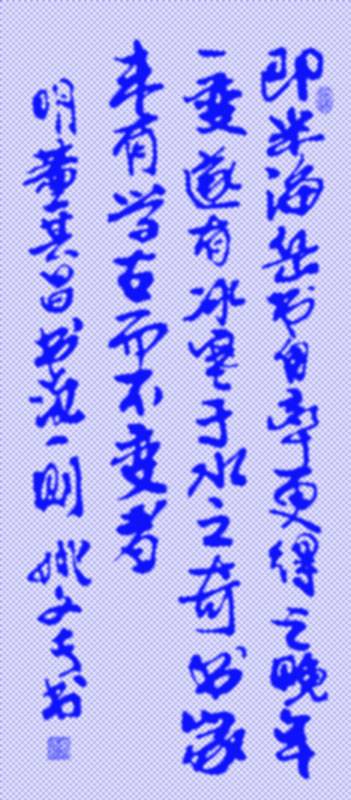 即米海岳书自率更得之晚年
一变遂有冰寒于水之奇书家
未有学古而不变者
明董其昌书一则 姚文书